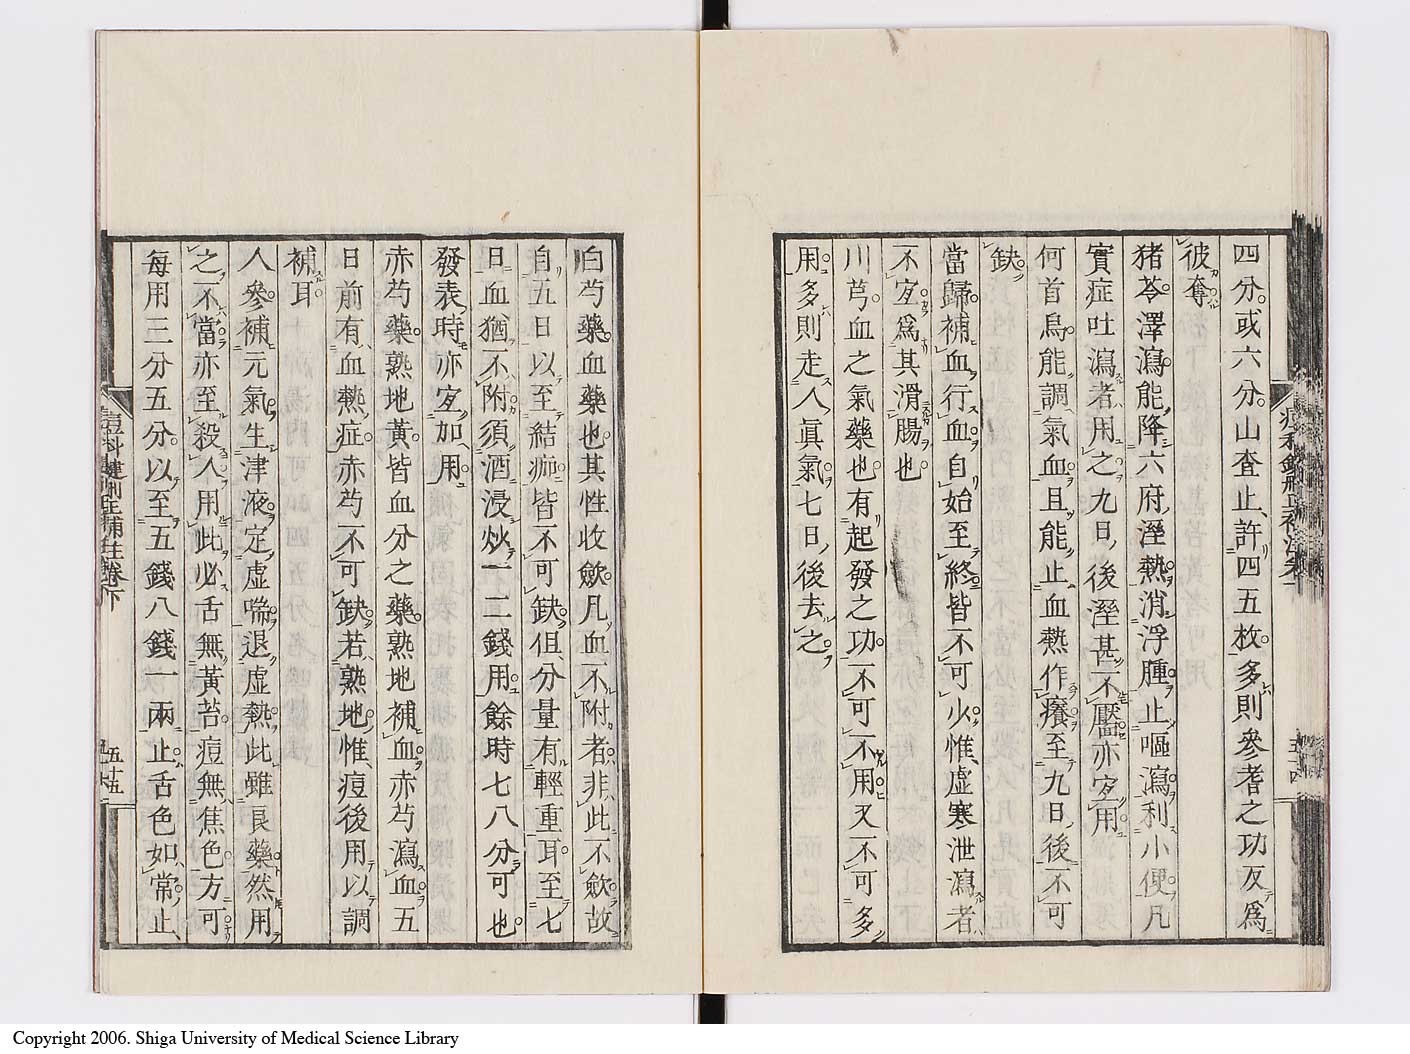 四分或六分山査止許四五枚多則參耆之功反爲
彼奪
猪苓澤瀉能降六府溼熱消浮腫止嘔瀉利小便凡
實症吐瀉者用之九日後溼甚不靨亦宐用
何首烏能調氣血且能止血熱作癢至九日後不可
缺
當歸補血行血自始至終皆不可少惟虛寒泄瀉者
不宐爲其滑腸也
川芎血之氣藥也有起發之功不可不用又不可多
用多則走人眞氣七日後去之
五十四
白芍藥血藥也其性收斂凡血不附者非此不斂故
自五日以至結痂皆不可缺但分量有輕重耳至七
日血猶不附須酒浸炒一二錢用餘時七八分可也
發表時亦宐加用
赤芍藥熟地黃皆血分之藥熟地補血赤芍瀉血五
日前有血熱症赤芍不可缺若熟地惟痘後用以調
補耳
人參補元氣生津液定虛喘退虛熱此雖良藥然用
之不當亦至殺人用此必舌無黃苔痘無焦色方可
每用三分五分以至五錢八錢一兩止舌色如常止
痘科鍵刪正補註卷下
五十五
Copyright 2006. Shiga University of Medical Science Library